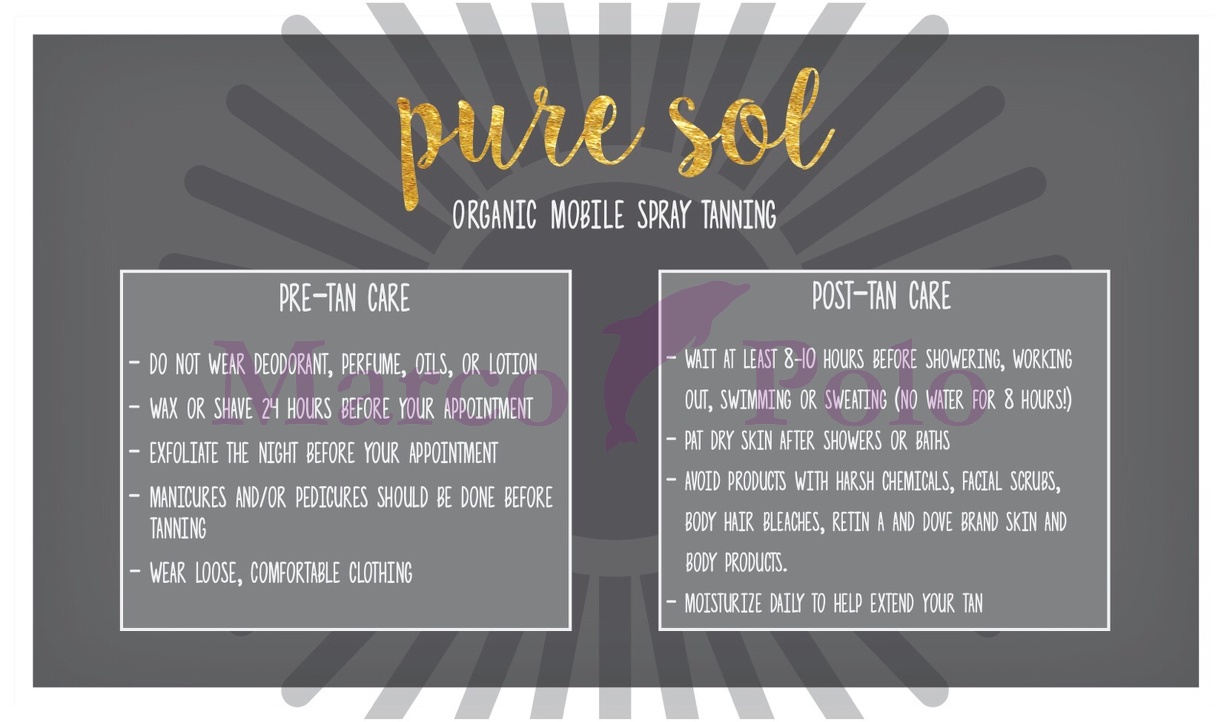 pure sol
ORGANIC MOBILE SPRAY TANNING
PRE-TAN CARE
- DO NOT WEAR DEODORANT, PERFUME, OILS, OR LOTION
- WAX OR SHAVE 24 HOURS BEFORE YOUR APPOINTMENT
- EXFOLIATE THE NIGHT BEFORE YOUR APPOINTMENT
- MANICURES AND/OR PEDICURES SHOULD BE DONE BEFORE
TANNING
- WEAR LOOSE, COMFORTABLE CLOTHING
POST-TAN CARE
- WAIT AT LEAST 8-10 HOURS BEFORE SHOWERING, WORKING
OUT, SWIMMING OR SWEATING (NO WATER FOR 8 HOURS!)
- PAT DRY SKIN AFTER SHOWERS OR BATHS
- AVOID PRODUCTS WITH HARSH CHEMICALS, FACIAL SCRUBS,
BODY HAIR BLEACHES, RETIN A AND DOVE BRAND SKIN AND
BODY PRODUCTS.
- MOISTURIZE DAILY TO HELP EXTEND YOUR TAN
Marco Polo